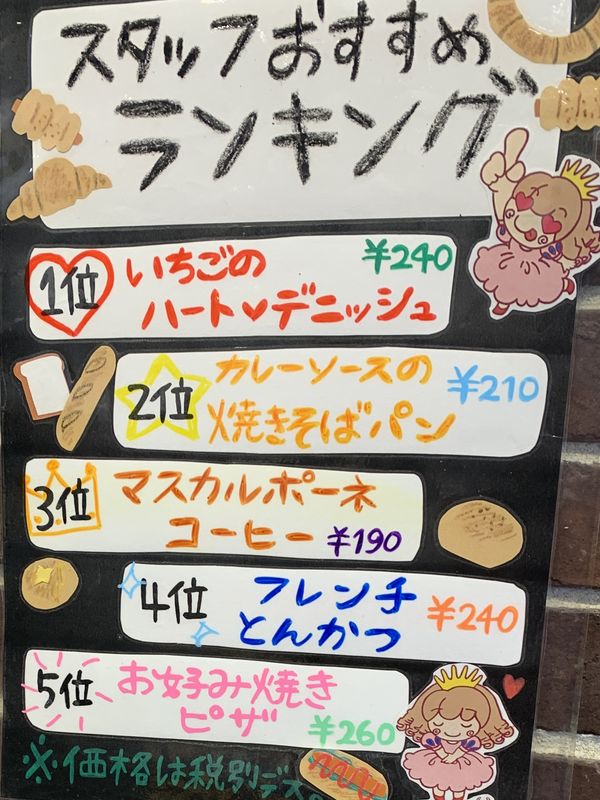 スタッフおすすめ
ランキング
1位
いちごの
ハート♥デニッシュ
¥240
2位
カレーソースの
焼きそばパン
¥210
3位
マスカルポーネ
コーヒー ¥190
4位
フレンチ
とんかつ
¥240
5位
お好み焼き
ピザ
¥260
※価格は税別デス